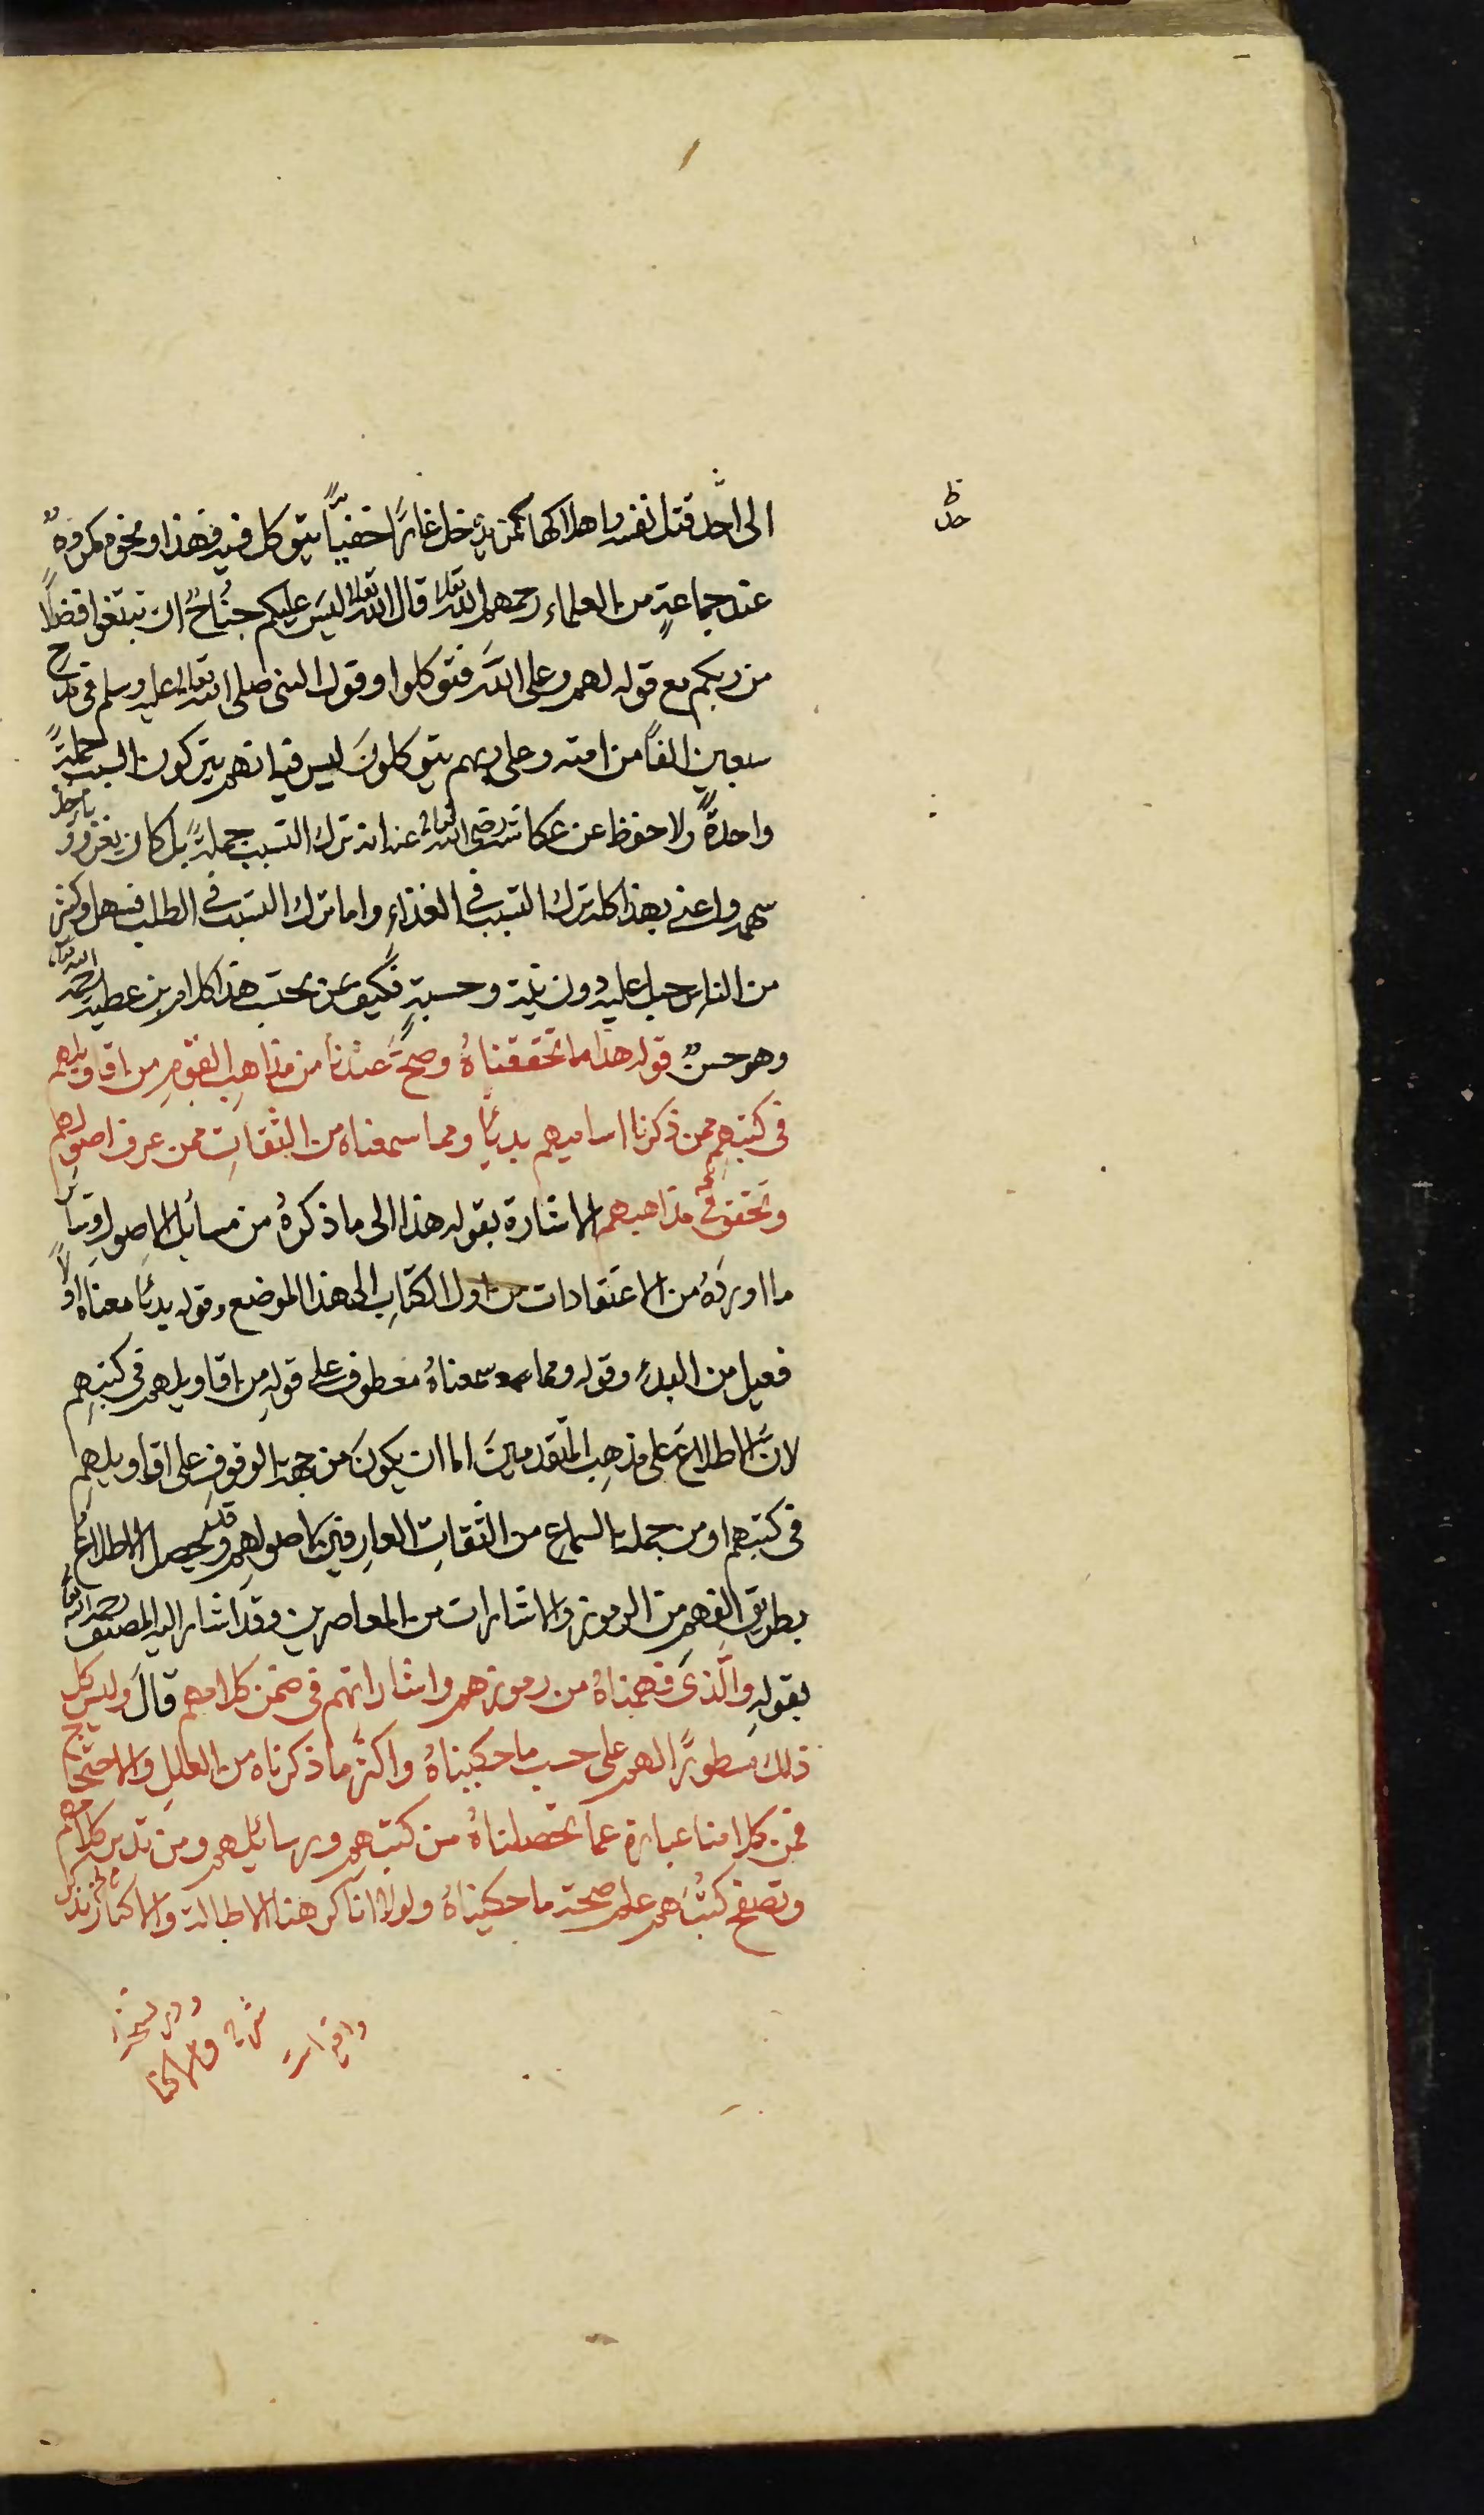 ظ
حد
الى احد قتل نفسه واهلاكها كمن يدخل غارًا خفيًّا يتوكل فيه فهذا ونحوه مكروهٌ
عند جماعةٍ من العلماء رحمهم الله تعالى قال الله تعالى ليسَ عليكم جناحٌ ان تبتغوا فضلًا
من ربكم مع قوله لهم وعلى الله فتوكلوا وقول النبى صلى الله تعالى عليه وسلم فى مدح
سبعين الفًا من امته وعلى ربهم يتوكلونَ ليس فيه انهم يتركون السبب جملةً
واحدةً ولا حفظ عن عكاشة رضى الله تعالى عنه انه ترك التسبب جملةً بل كان يغزو وياخذ
سهمه واعنى بهذا كله ترك التسبب فى الغذاءِ واما ترك التسبب فى الطلب فسهل وكثير
من الناس جبل عليه دون نية وحسبةٍ فكيف بمن يحتسب هذا كلام ابن عطية رحمه الله تعالى
وهو حسنٌ قوله هذا ما تحققناهُ وصحَّ عندنا من مذاهبِ القومِ من اقاويلهم
فى كتبهم ممن ذكرنا اساميهم بديًّا ومما سمعناه من الثقاتِ ممن عرف اصولهم
وتحقق مذاهبهم الاشارة بقوله هذا الى ما ذكرهُ من مسائل الاصول وسائر
ما اوردهُ من الاعتقادات من اول الكتابِ الى هذا الموضع وقوله بديًّا معناه اوّلًا
فعيل من البدءِ وقوله ومما سمعناهُ معطوف على قولهِ من اقاويلهم فى كتبهِم
لانَّ الاطلاعَ على مذهبِ المتقدمينَ اما ان يكونَ من جهة الوقوفِ على اقاويلهِم
فى كتبهم او من جملة السماعِ من الثقاتِ العارفينَ باصولهم وقد يحصل الاطلاعُ
بطريق الفهم من الرموز والاشارات من المعاصرين وقد اشار اليه المصنف رحمه الله تعالى
بقولهِ والَّذى فهمناهُ من رموزهم واشاراتهم فى ضمن كلامهم قالَ وليس كل
ذلك مسطورًا لهم على حسب ما حكيناهُ واكثرُ ما ذكرناه من العللِ والاحتجاج
فمن كلامنا عبارة عما تحصلناهُ من كتبهم ورسائلهم ومن تدبر كلامهم
وتصفح كتُبَهم علم صحة ما حكيناهُ ولولا انا كرهنا الاطالة والاكثار لذكر
ودر نسخهٔ